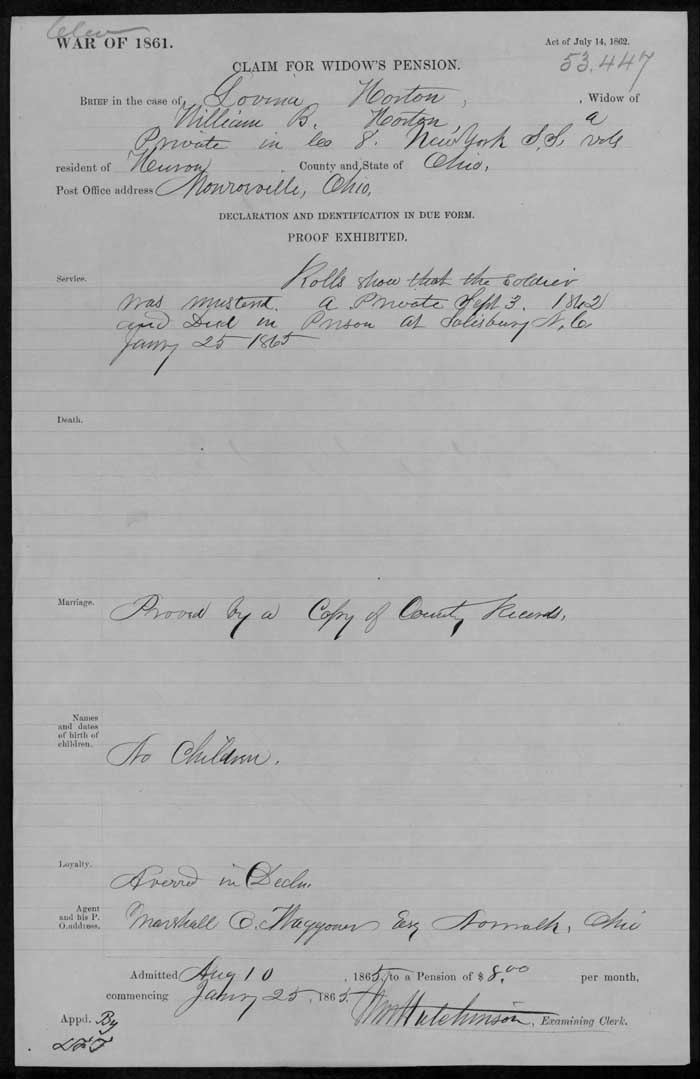 Clew
WAR OF 1861.
Act of July 14, 1862.
CLAIM FOR WIDOW'S PENSION.
53,447
BRIEF in the case of Lovina Horton, , Widow of
William B. Horton, a
Private in Co 8. New York S.S. vols
resident of Huron County and State of Ohio,
Post Office address Monroeville, Ohio,
DECLARATION AND IDENTIFICATION IN DUE FORM.
PROOF EXHIBITED.
Service.
Rolls show that the soldier
was mustered. a Private Sept 3. 1862
and Died in Prison at Salisbury N.C.
Jany 25 1865
Death.
Marriage.
Proved by a Copy of County Records.
Names
and dates
of birth of
children.
No Children.
Loyalty.
Averred in Decln.
Agent
and his P.
O. address.
Marshall O. Waggoner Esq Norwalk, Ohio
Admitted Aug 10 , 1865, to a Pension of $ 8.00 per month,
commencing Jany 25, 1865.
Wm Hutchinson, Examining Clerk.
Appd. By